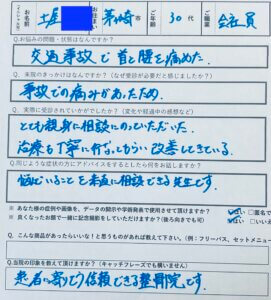 お名前 土屋 お住まい 茅ヶ崎市 ご年齢 30代 ご職業 会社員
Q.お悩みの問題・状態はなんですか?
交通事故で首と腰を痛めた。
Q. 来院のきっかけはなんですか?(なぜ受診が必要だと感じましたか?)
事故での痛みがあったため。
Q. 実際に受診されていかがでしたか?(変化や経過中の感想など)
とても親身に相談にのっていただいた。
治療も丁寧に行なってもらい改善してきている。
Q.同じような症状の方にアドバイスをするとしたら何をお話しますか?
悩んでいることを素直に相談できる先生です。
※ あなた様の症例や画像を、データの開示や学術発表で使用させて頂けますか?
はい
※ 良くなったお顔で一緒に記念撮影をしていただけますか?(後ろ向きでも可)
はい
Q. こんな商品があったらいいな!と思うものがあれば教えて下さい。(例:フリーパス、セットメニュー
Q.当院の印象を教えて頂けますか?(キャッチフレーズでも構いません)
患者に寄りそう信頼できる整骨院です。